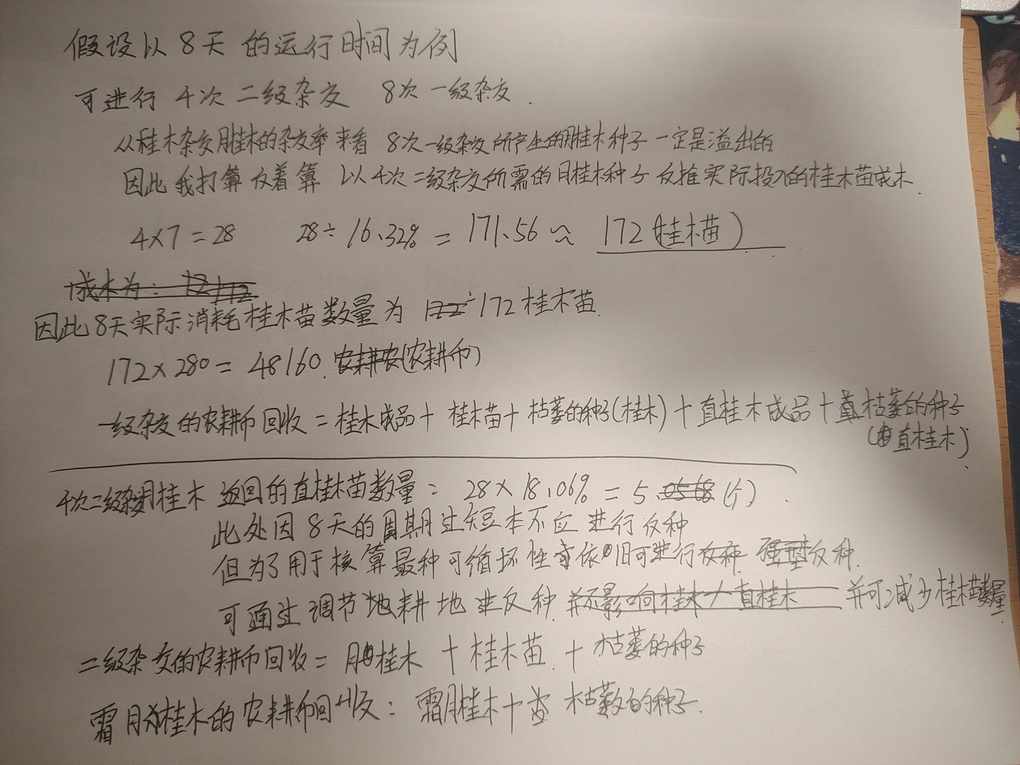 假设以8天的运行时间为例
可进行 4次 二级杂交 8次 一级杂交.
从桂木杂交月桂木的杂交率来看 8次一级杂交所产生的月桂木种子一定是溢出的
因此我打算反着算 以4次二级杂交所需的月桂木种子反推实际投入的桂木苗成本.
4×7=28 28÷16.32%=171.56≈172(桂木苗)
成本为:
因此8天实际消耗桂木苗数量为 172桂木苗.
172×280=48160.(农耕币)
一级杂交的农耕币回收=桂木成品+桂木苗+枯萎的种子(桂木)+直桂木成品+枯萎的种子
(由直桂木)
4次二级杂交月桂木 返回的直桂木苗数量=28×18.06%=5(个).
此处因8天的周期过短本不应进行反种
但为了用于核算最种可循环性故依旧可进行 反种.
可通过调节地耕地 来反种 并可减少桂木苗数量
二级杂交的农耕币回收=月桂木+桂木苗+枯萎的种子
霜月桂木的农耕币回收:霜月桂木+ 枯萎的种子.